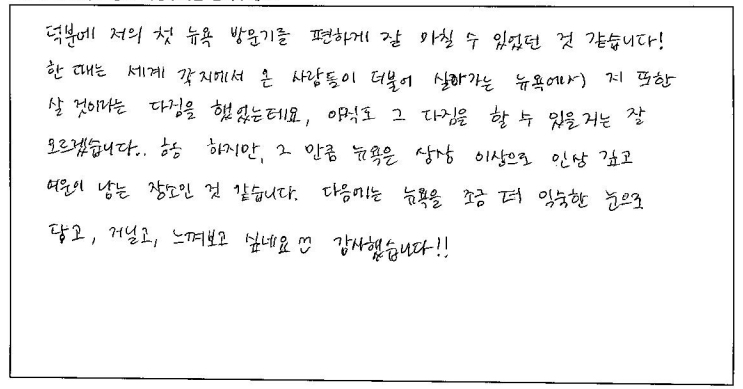 덕분에 저의 첫 뉴욕 방문기를 편하게 잘 마칠 수 있었던 것 같습니다!
한 때는 세계 각지에서 온 사람들이 더불어 살아가는 뉴욕에서 저 또한
살 것이라는 다짐을 했었는데요, 아직도 그 다짐을 할 수 있을지는 잘
모르겠습니다.. 하하 하지만, 그 만큼 뉴욕은 상상 이상으로 인상 깊고
여운이 남는 장소인 것 같습니다. 다음에는 뉴욕을 조금 더 익숙한 눈으로
담고, 거닐고, 느껴보고 싶네요 감사했습니다!!